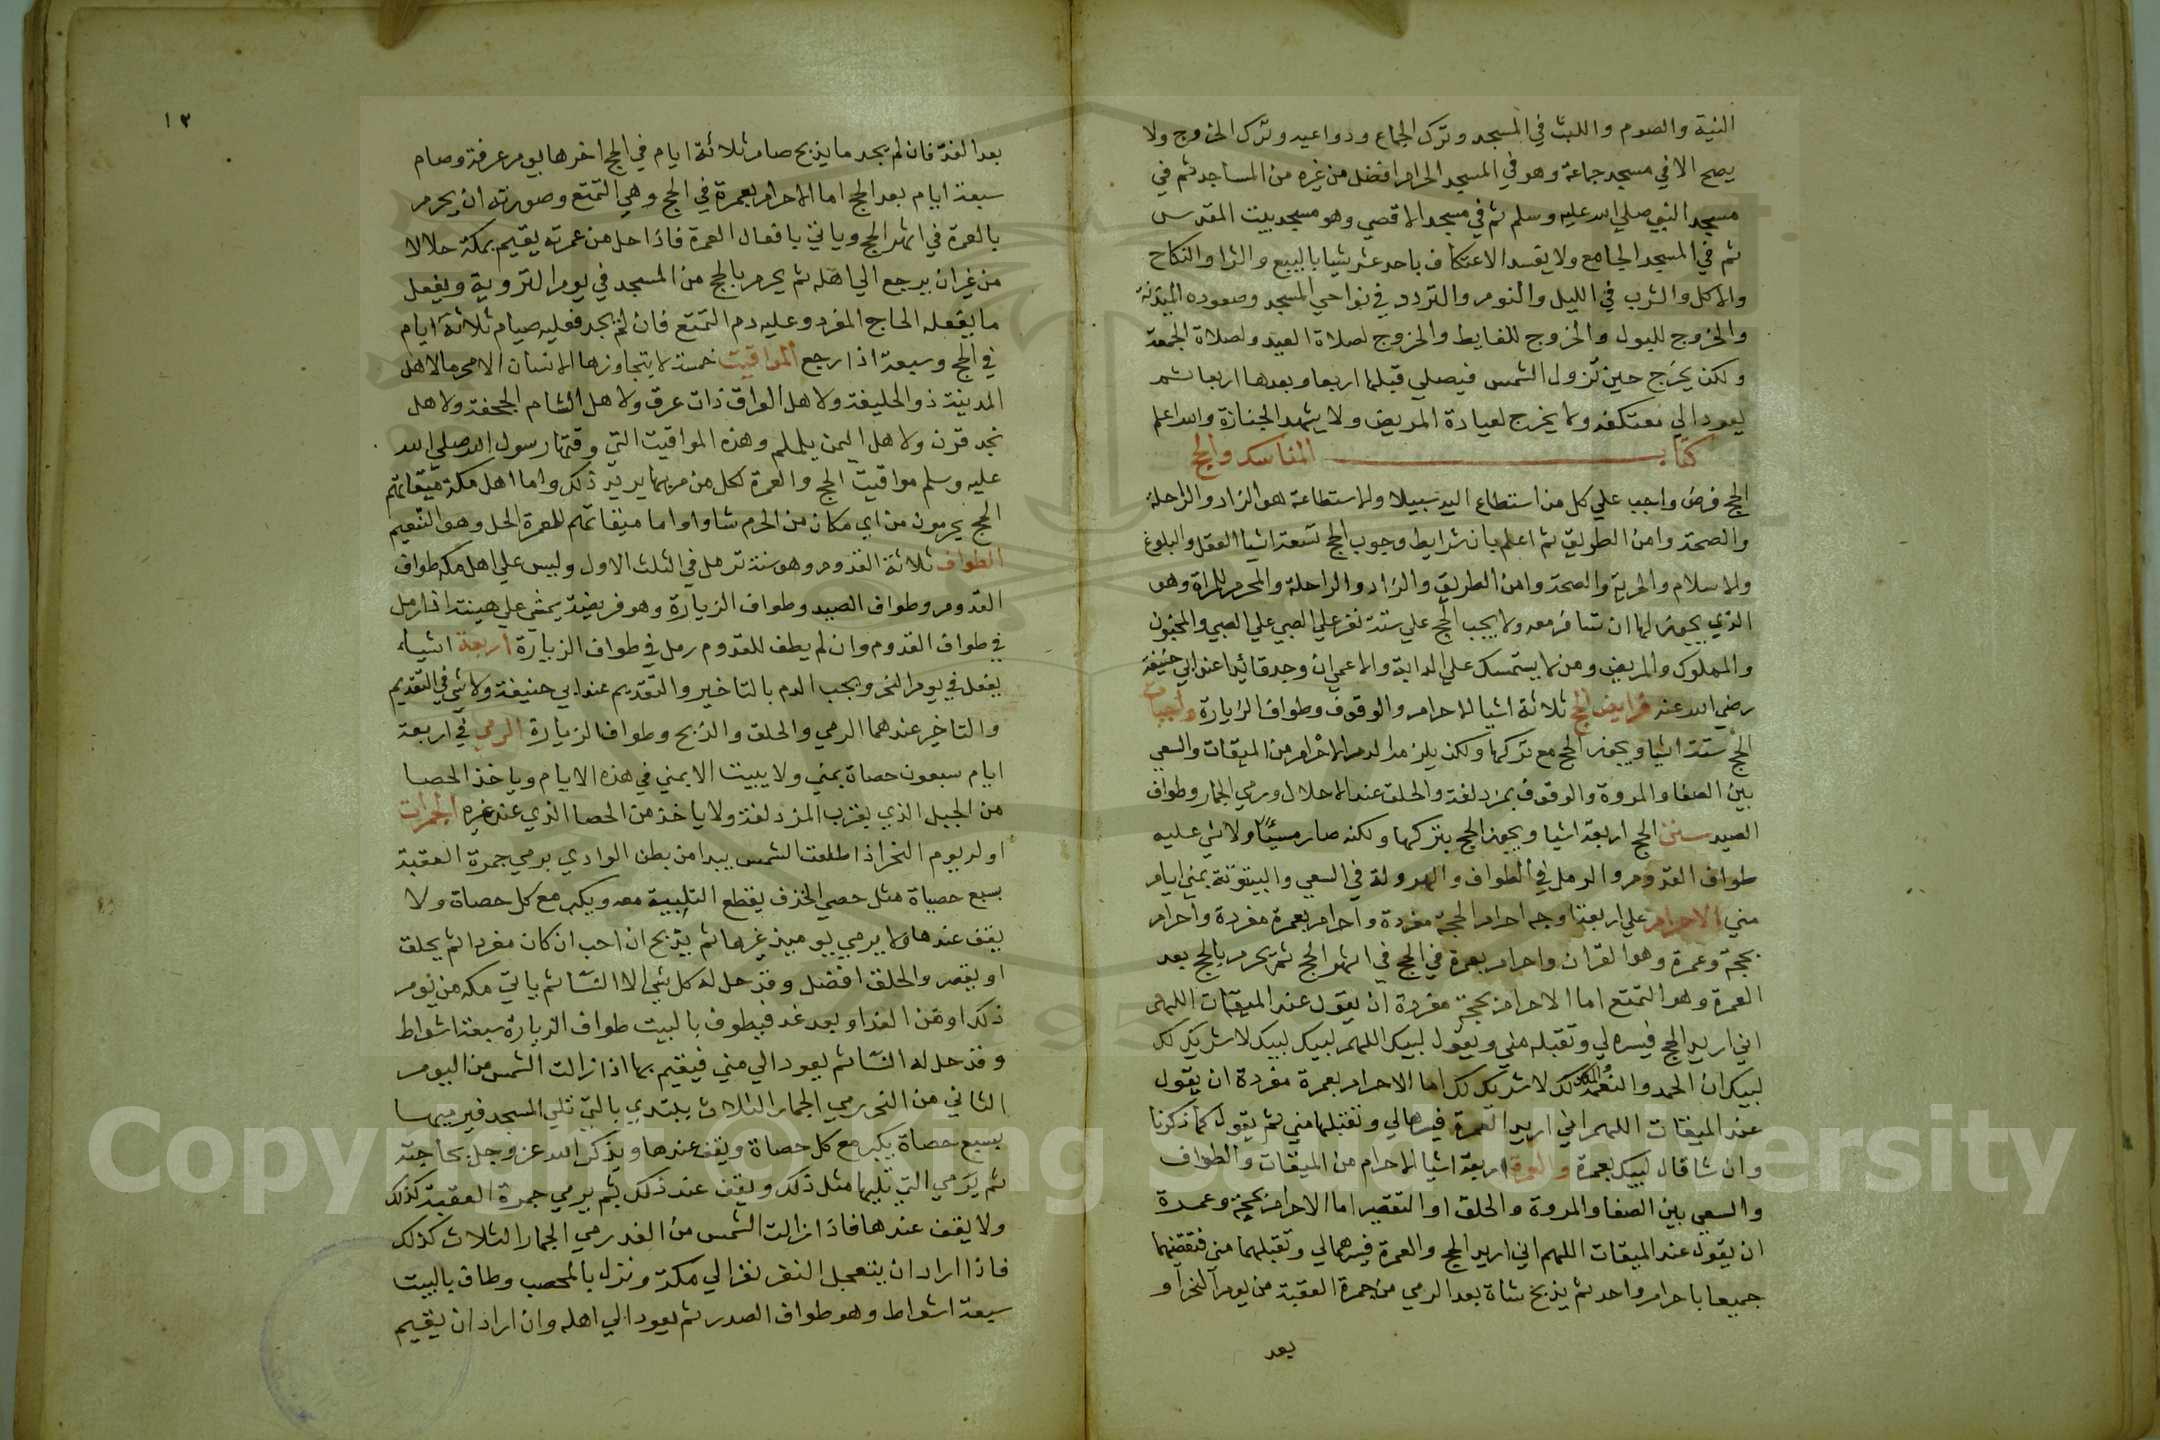 النية والصوم واللبث في المسجد وترك الجماع ودواعيه وترك الخروج ولا
يصح الا في مسجد جماعة وهو في المسجد الحرام افضل من غيره من المساجد ثم في
مسجد النبي صلي الله عليه وسلم ثم في مسجد الاقصي وهو مسجد بيت المقدس
ثم في المسجد الجامع ولا يفسد الاعتكاف باحد عشر شيا بالبيع والشرا والنكاح
والاكل والشرب في الليل والنوم والتردد في نواحي المسجد وصعوده الميذنة
والخروج للبول والخروج للغايط والخروج لصلاة العيد ولصلاة الجمعة
ولكن يخرج حين تزول الشمس فيصلي قبلها اربعا وبعدها اربعا ثم
يعود الي معتكفه ولا يخرج لعيادة المريض ولا يشهد الجنازة والله اعلم
كتاب المناسك والحج
الحج فرض واجب علي كل من استطاع اليه سبيلا والاستطاعة هو الزاد والراحلة
والصحة وامن الطريق ثم اعلم بان شرايط وجوب الحج تسعة اشيا العقل والبلوغ
والاسلام والحرية والصحة وامن الطريق والزاد والراحلة والمحرم للمراة وهو
الذي يجوز لها ان تسافر معه ولا يجب الحج علي ستة نفر علي الصبي علي الصبي والمجنون
والمملوك والمريض ومن لا يستمسك علي الدابة والاعمي ان وجد قائدا عند ابي حنيفة
رضي الله عنه فرايض الحج ثلاثة اشيا الاحرام والوقوف وطواف الزيارة واجبات
الحج ستة اشيا ويجوز الحج مع تركها ولكن يلزمه الدم الاحرام من الميقات والسعي
بين الصفا والمروة والوقوف بمزدلفة والحلق عند الاحلال ورمي الجمار وطواف
الصيد سنن الحج اربعة اشيا ويجوز الحج بتركها ولكنه صار مسيئا ولا شي عليه
طواف القدوم والرمل في الطواف والهرولة في السعي والبيتوتة بمني ايام
مني الاحرام علي اربعة اوجه احرام الحجة مفردة واحرام بعمرة مفردة واحرام
بحجة وعمرة وهو القران واحرام بعمرة في الحج في اشهر الحج ثم يحرم بالحج بعد
العمرة وهو التمتع اما الاحرام بحجة مفردة ان يقول عند الميقات اللهم
اني اريد الحج فيسره لي وتقبله مني ويقول لبيك اللهم لبيك لبيك لا شريك لك
لبيك ان الحمد والنعمة والملك لك لا شريك لك اما الاحرام بعمرة مفردة ان يقول
عند الميقات اللهم اني اريد العمرة فيسرها لي وتقبلها مني ثم يقول كما ذكرنا
وان شا قال لبيك بعمرة والعمرة اربعة اشيا الاحرام من الميقات والطواف
والسعي بين الصفا والمروة والحلق او التقصير اما الاحرام بحجة وعمرة
ان يقول عند الميقات اللهم اني اريد الحج والعمرة فيسرهما لي وتقبلهما مني فيقضيهما
جميعا باحرام واحد ثم يذبح شاة بعد الرمي من جمرة العقبة من يوم النحر او
بعد
١٢
بعد الغد فان لم يجد ما يذبح صام ثلاثة ايام في الحج اخرها يوم عرفة وصام
سبعة ايام بعد الحج اما الاحرام بعمرة في الحج وهي التمتع وصورته ان يحرم
بالعمرة في اشهر الحج وياتي بافعال العمرة فاذا حل من عمرته يقيم بمكة حلالا
من غير ان يرجع الي اهله ثم يحرم بالحج من المسجد في يوم التروية ويفعل
ما يفعله الحاج المفرد وعليه دم التمتع فان لم يجد فعليه صيام ثلاثة ايام
في الحج وسبعة اذا رجع المواقيت خمسة لا يتجاوزها الانسان الا محرما لاهل
المدينة ذو الحليفة ولاهل العراق ذات عرق ولاهل الشام الجحفة ولاهل
نجد قرن ولاهل اليمن يلملم وهذه المواقيت التي وقتها رسول الله صلي الله
عليه وسلم مواقيت الحج والعمرة لكل من مر بها يريد ذلك واما اهل مكة ميقاتهم
الحج يحرمون من اي مكان من الحرم شاوا واما ميقاتهم للعمرة الحل وهو التنعيم
الطواف ثلاثة القدوم وهو سنة ترمل في الثلث الاول وليس علي اهل مكة طواف
القدوم وطواف الصيد وطواف الزيارة وهو فريضة يمشي علي هينته اذا رمل
في طواف القدوم وان لم يطف للقدوم رمل في طواف الزيارة اربعة اشياء
يفعل في يوم النحر ويجب الدم بالتاخير والتقديم عند ابي حنيفة ولا شي في التقديم
والتاخير عندهما الرمي والحلق والذبح وطواف الزيارة الرمي في اربعة
ايام سبعون حصاة بمني ولا يبيت الا بمني في هذه الايام وياخذ الحصا
من الجبل الذي يقرب المزدلفة ولا ياخذ من الحصا الذي عند غيره الجمرات
اوله يوم النحر اذا طلعت الشمس يبدا من بطن الوادي يرمي جمرة العقبة
بسبع حصياة مثل حصي الخذف يقطع التلبية معه ويكبر مع كل حصاة ولا
يقف عندها ولا يرمي يوميذ غيرها ثم يذبح ان احب ان كان مفردا ثم يحلق
او يقصر والحلق افضل وقد حل له كل شي الا النسا ثم ياتي مكة من يوم
ذلك او من الغد او بعد غد فيطوف بالبيت طواف الزيارة سبعة اشواط
وقد حل له النسا ثم يعود الي مني فيقيم بها اذا زالت الشمس من اليوم
الثاني من النحر رمي الجمار الثلاث يبتدي بالتي تلي المسجد فيرميها
بسبع حصاة يكبر مع كل حصاة ويقف عندها ويذكر الله عز وجل بحاجته
ثم يرمي التي تليها مثل ذلك ويقف عند ذلك ثم يرمي جمرة العقبة كذلك
ولا يقف عندها فاذا زالت الشمس من الغد رمي الجمار الثلاث كذلك
فاذا اراد ان يتعجل النفر نفر الي مكة ونزل بالمحصب وطاف بالبيت
سبعة اشواط وهو طواف الصدر ثم يعود الي اهله وان اراد ان يقيم
Copyright © King Saud University